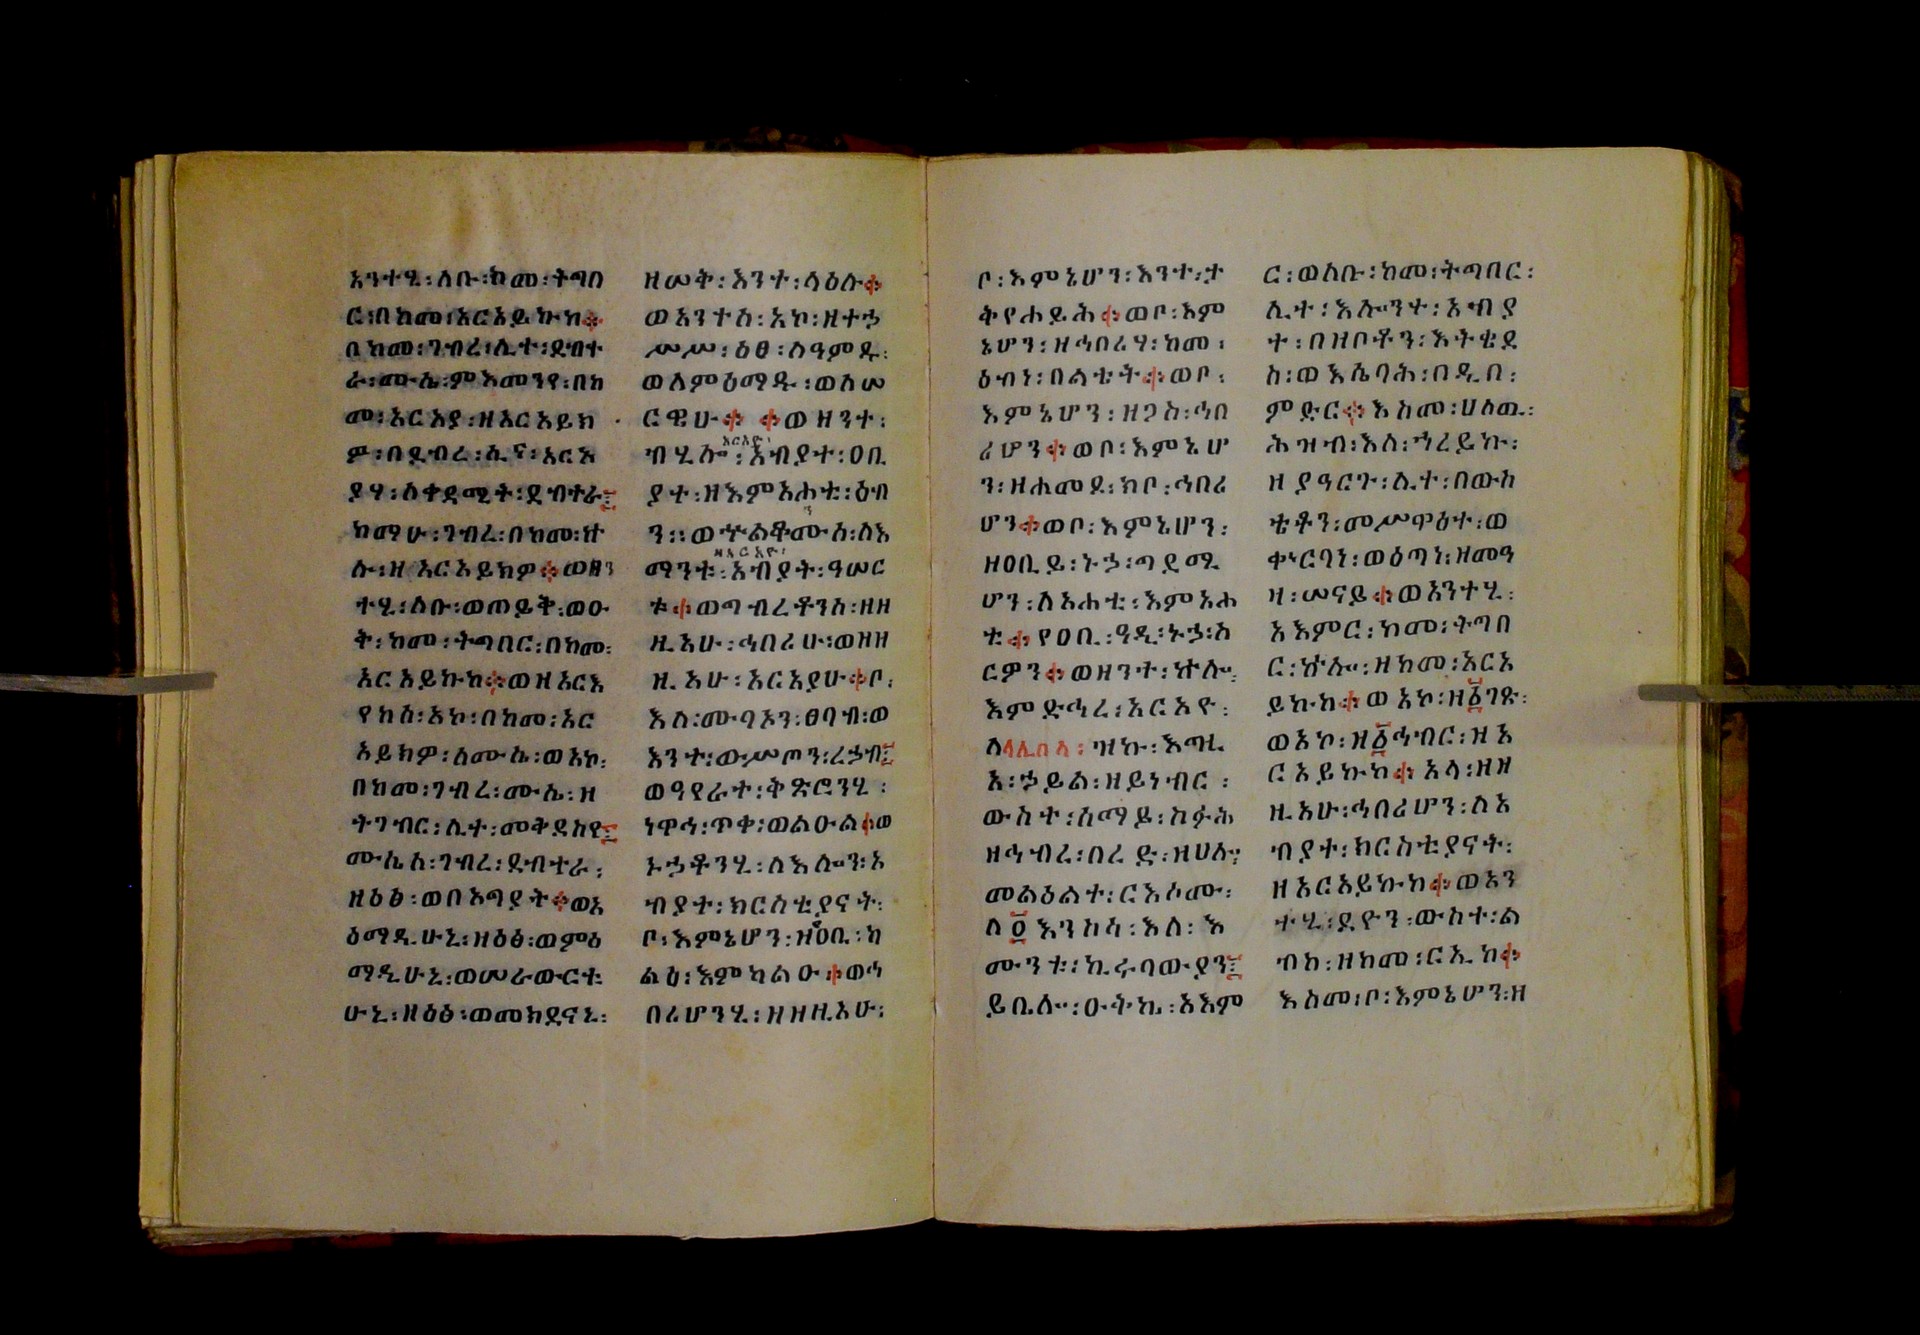 አንተሂ፡ለቡ፡ከመ፡ትግበ
ር፡በከመ፡አርአይኩከ፨
በከመ፡ገብረ፡ሊተ፡ደብተ
ራ፡ሙሴ፡ምእመንየ፡በከ
መ፡አርአያ፡ዘአርአይክ
ዎ፡በደብረ፡ሲና፡አርአ
ያሃ፡ለቀዳሚት፡ደብተራ፤
ከማሁ፡ገብረ፡በከመ፡ኵ
ሉ፡ዘአርአይክዎ፨ወዘን
ተሂ፡ለቡ፡ወጠይቅ፡ወዑ
ቅ፡ከመ፡ትግበር፡በከመ፡
አርአይኩከ፨ወዘአርአ
የከሰ፡አኮ፡በከመ፡አር
አይክዎ፡ለሙሴ፡ወአኮ፡
በከመ፡ገብረ፡ሙሴ፡ዘ
ትገብር፡ሊተ፡መቅደስየ፤
ሙሴሰ፡ገብረ፡ደብተራ፡
ዘዕፅ፡ወበአግያት፨ወአ
ዕማዲሁኒ፡ዘዕፅ፡ወምዕ
ማዲሁኒ፡ወመራውርቱ
ሁኒ፡ዘዕፅ፡ወመክደናኒ፡
ዘሠቅ፡እንተ፡ላዕሉ፨
ወአንተሰ፡አኮ፡ዘተኃ
ሥሥ፡ዕፀ፡ለዓምዱ፡
ወለምዕማዱ፡ወለሠ
ርዌሁ፨ ፨ወዘንተ፡
አርአዮ፡
ብሂሎ፡አብያተ፡ዐቢ
ያተ፡ዘእምአሐቲ፡ዕብ
ን፡፡ወኍልቆሙሰ፡ለእ
ዘአርአዮ፡
ማንቱ፡አብያት፡ዓሠር
ቱ፨ወግብረቶንሰ፡ዘዘ
ዚአሁ፡ኅበሪሁ፡ወዘዘ
ዚአሁ፡አርአያሁ፨ቦ፡
እለ፡ሙባእን፡ፀባብ፡ወ
እንተ፡ውሥጦን፡ረኃብ፤
ወዓየራተ፡ቅጽሮንሂ፡
ነዋኅ፡ጥቀ፡ወልዑል፨ወ
ኑኃቶንሂ፡ለእሎን፡አ
ብያተ፡ክርስቲያናት፡
ቦ፡እምኔሆን፡ዘዐቢ፡ካ
ልዕ፡እምካልዑ፨ወኅ
በሪሆንሂ፡ዘዘዚአሁ፡
ቦ፡እምኔሆን፡እንተ፡ታ
ቅየሐይሕ፨ወቦ፡እም
ኔሆን፡ዘኅበሪሃ፡ከመ፡
ዕብነ፡በልቴት፨ወቦ፡
እምኔሆን፡ዘጋስ፡ኅበ
ሪሆን፨ወቦ፡እምኔሆ
ን፡ዘሐመደ፡ክቦ፡ኅበሪ
ሆን፨ወቦ፡እምኔሆን፡
ዘዐቢይ፡ኑኃ፡ጣደሚ
ሆን፡ለአሐቲ፡እምአሐ
ቲ፨የዐቢ፡ዓዲ፡ኑኃ፡አ
ርዎን፨ወዘንተ፡ኵሎ፡
እምድኅረ፡አርአዮ፡
ለላሊበላ፡ዝኩ፡እግዚ
አ፡ኃይል፡ዘይነብር፡
ውስተ፡ሰማይ፡ስፉሕ
ዘኅብረ፡በረድ፡ዘሀሎ፡
መልዕልተ፡ርእሶሙ፡
ለ፬እንስሳ፡እለ፡እ
ሙንቱ፡ኪሩባውያን፤
ይቤሎ፡ዑትኬ፡አእም
ር፡ወለቡ፡ከመ፡ትግበር፡
ሊተ፡እሎንተ፡አብያ
ተ፡በዘቦቶን፡እትዌደ
ስ፡ወእሴባሕ፡በዲበ፡
ምድር፨እስመ፡ሀለዉ፡
ሕዝብ፡እለ፡ኀረይኩ፡
ዘያዓርጉ፡ሊተ፡በውስ
ቴቶን፡መሥዋዕተ፡ወ
ቀኍርባነ፡ወዕጣነ፡ዘመዓ
ዛ፡ሠናይ፨ወአንተሂ፡
አእምር፡ከመ፡ትግበ
ር፡ኵሎ፡ዘከመ፡አርአ
ይኩከ፨ወአኮ፡ዘ፩ገጽ፡
ወአኮ፡ዘ፩ኅብር፡ዘአ
ርአይኩከ፨አላ፡ዘዘ
ዚአሁ፡ኅበሪሆን፡ለአ
ብያተ፡ክርስቲያናት፡
ዘአርአይኩከ፨ወአን
ተሂ፡ደዮን፡ውስተ፡ል
ብከ፡ዘከመ፡ርኢከ፨
እስመ፡ቦ፡እምኔሆን፡ዘ